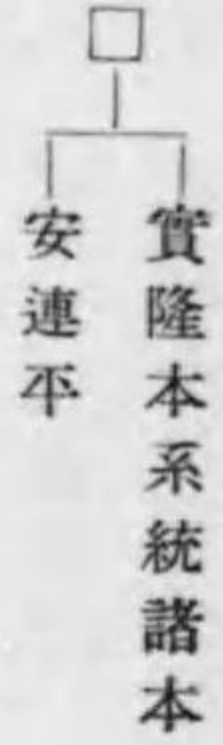 實隆本系統諸本
安連平